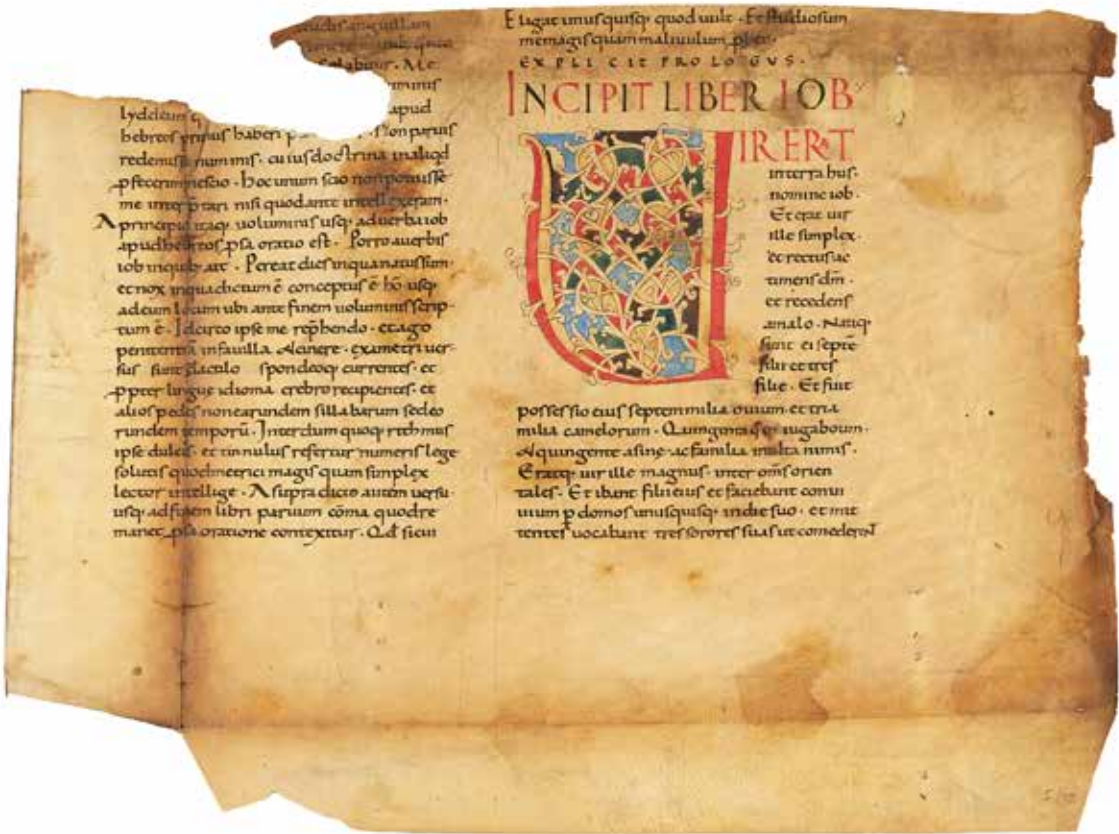 lyddeum
hebreos primus haberi
redemisse nummis · cuius doctrina inaliqd
pfecerim nescio · hoc unum scio nonpotuisse
me interptari nisi quodante intellexeram ·
A principio itaq; uoluminis usq; aduerba iob
apudhebreos psa oratio est · Porro auerbis
iob inquib; ait · Pereat dies inqua natussum ·
et nox inqua dictum ē conceptus ē hō usq;
adeum locum ubi ante finem uoluminis scrip
tum ē · Idcirco ipse me rephendo · et ago
penitentiā infauilla & cinere · exametri uer
sus sunt dactilo spondeoq; currentes · et
ppter lingue idioma crebro recipientes · et
alios pedes non earundem sillabarum sed eo
rundem temporū · Interdum quoq; rithmus
ipse dulcis · et tinnulus refertur numeris lege
solutis quod metrici magis quam simplex
lector intellige · A supra dicto autem uersu
usq; adfinem libri paruum cōma quod re
manet psa oratione contexitur · Qd sicui
Eligat unusquisq; quod uult · Et studiosum
me magis quam maliuulum
EXPLICIT PROLOGVS ·
INCIPIT LIBER IOB
VIR ERAT
interra hus ·
nomine iob ·
Et erat uir
ille simplex ·
et rectus ac
timens dm̄ ·
et recedens
amalo · Natiq;
sunt ei septē
filii et tres
filie · Et fuit
possessio eius septem milia ouium · et tria
milia camelorum · Quingenta q̄q; iugaboum ·
& quingente asine · ac familia multa nimis ·
Eratq; uir ille magnus · inter om̄s orien
tales · Et ibant filii eius et faciebant conui
uium p domos unusquisq; indie suo · et mit
tentes uocabant tres sorores suas ut comederent